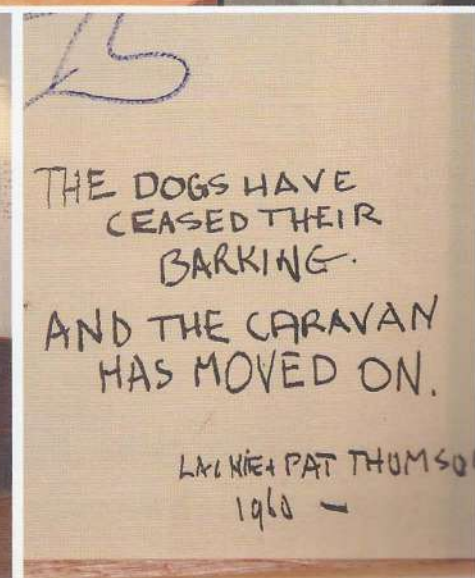 THE DOGS HAVE
CEASED THEIR
BARKING.
AND THE CARAVAN
HAS MOVED ON.
PAT
1960 —